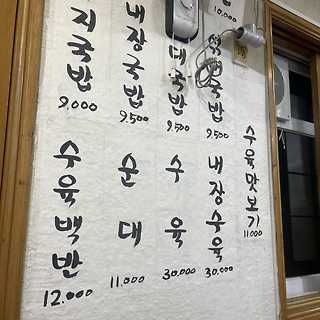 10.000
지국밥
9.000
내장국밥
9.500
대국밥
9.500
국밥
9.500
수육백반
12.000
순대
11.000
수육
30.000
내장수육
30.000
수육맛보기
11.000